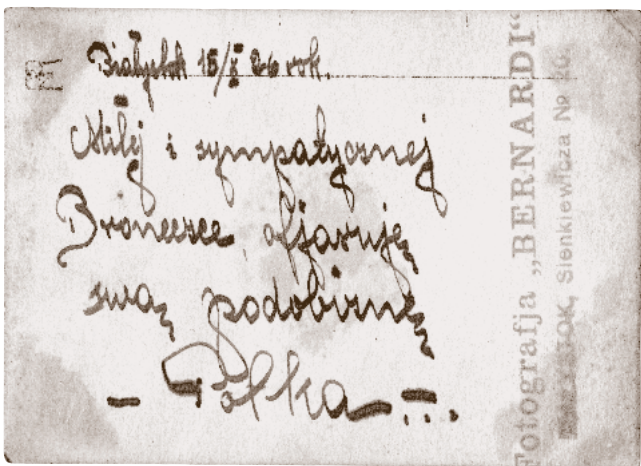 Białystok 15/X 26 rok.
Miłej i sympatycznej
Broneczce ofjaruję
swą podobiznę
— Polka — ...
Fotografja „BERNARDI“
BIAŁYSTOK, Sienkiewicza №